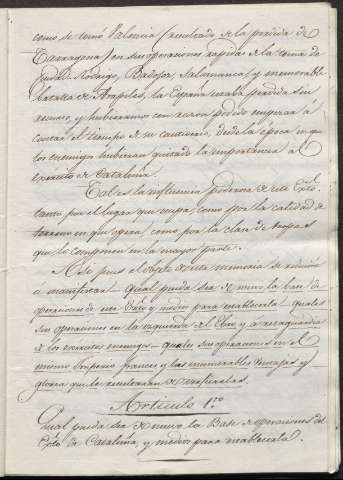 como se tomó Valencia (resultado de la perdida de
Tarragona) en sus operaciones rapidas de la toma de
Ciudad-Rodrigo, Badajoz, Salamanca y memorable
batalla de Arapiles, la España estaba perdida sin
recurso, y hubieramos con razon podido empezar á
contar el tiempo de su cautiverio, desde la época en que
los enemigos hubieran quitado la importancia al
exercito de Cataluña.
Tal es la influencia poderosa de este Exto.
tanto por el lugar que ocupa, como por la calidad de
terreno en que opera, como por la clase de tropas
que lo componen en la mayor parte.
pues el objeto de esta memoria se reduce
a manifestar qual pueda ser de nuevo la base de
operaciones de este Exto y medios para establecerla quales
sus operaciones en la izquierda del Ebro y á retaguardia
de los exercitos enemigos quales sus operaciones en el
mismo Imperio frances y las inumerables ventajas y
gloria que le resultaran de verificarlas.
Articulo 1.ro
Qual pueda ser de nuevo la Base de operaciones del
Exto de Cataluña, y medios para establecerla.